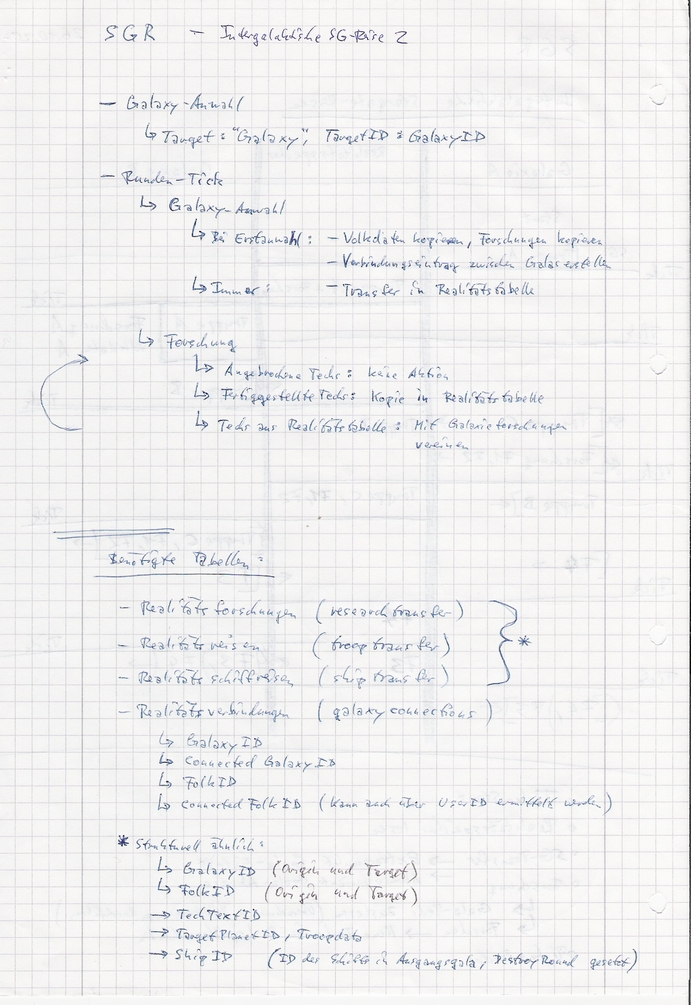 SGR – Intergalaktische SG-Reise 2
– Galaxy-Anwahl
↳ Target: "Galaxy", TargetID = GalaxyID
– Runden-Tick
↳ Galaxy-Anwahl
↳ Bei Erstanwahl: – Volkdaten kopieren, Forschungen kopieren
– Verbindungseintrag zwischen Galas erstellen
↳ Immer: – Transfer in Realitätstabelle
↳ Forschung
↳ Angebrochene Techs: keine Aktion
↳ Fertiggestellte Techs: Kopie in Realitätstabelle
↳ Techs aus Realitätstabelle: Mit Galaxieforschungen
vereinen
Benötigte Tabellen:
– Realitätsforschungen (researchtransfer)
– Realitätsreisen (trooptransfer)
– Realitätsschiffreisen (shiptransfer)
– Realitätsverbindungen (galaxyconnections)
} *
↳ GalaxyID
↳ Connected GalaxyID
↳ FolkID
↳ Connected FolkID (kann auch über UserID ermittelt werden)
* Strukturell ähnlich:
↳ GalaxyID (Origin und Target)
↳ FolkID (Origin und Target)
→ TechTextID
→ TargetPlanetID, Troopdata
→ ShipID (ID des Schiffs in Ausgangsgala, DestroyRound gesetzt)